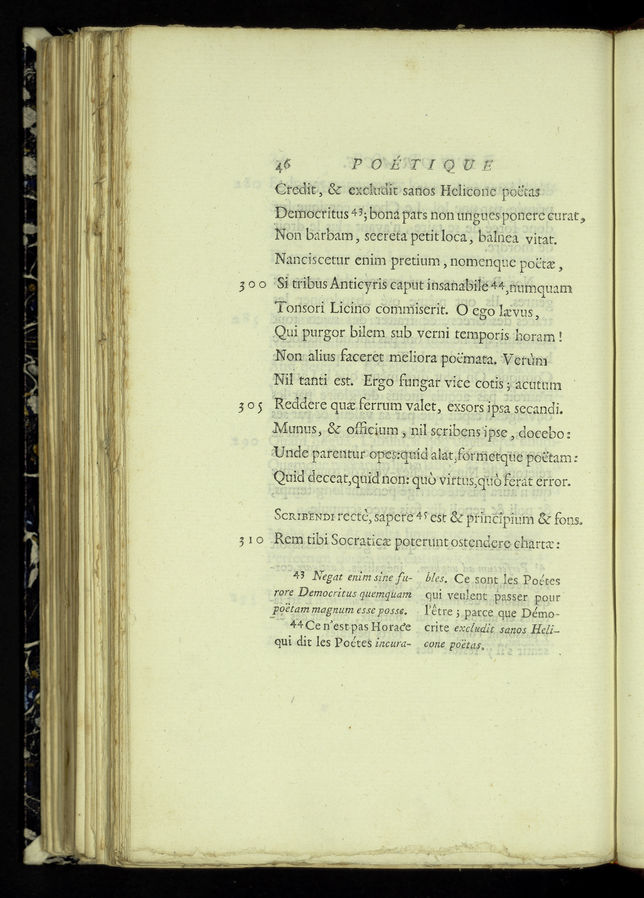 46 POÉTIQUE
Credit, & excludit sanos Helicone poëtas
Democritus 43; bona pars non ungues ponere curat,
Non barbam, secreta petit loca, balnea vitat.
Nanciscetur enim pretium, nomenque poëtæ,
300 Si tribus Anticyris caput insanabile 44, numquam
Tonsori Licino commiserit. O ego lævus,
Qui purgor bilem sub verni temporis horam!
Non alius faceret meliora poëmata. Verùm
Nil tanti est. Ergo fungar vice cotis; acutum
305 Reddere quæ ferrum valet, exsors ipsa secandi.
Munus, & officium, nil scribens ipse, docebo:
Unde parentur opes: quid alat, formetque poëtam:
Quid deceat, quid non: quò virtus, quò ferat error.
SCRIBENDI rectè, sapere 45 est & principium & fons.
310 Rem tibi Socraticæ poterunt ostendere chartæ:
43 Negat enim sine fu-
rore Democritus quemquam
poëtam magnum esse posse.
44 Ce n'est pas Horace
qui dit les Poétes incura-
bles. Ce sont les Poétes
qui veulent passer pour
l'être; parce que Démo-
crite excludit sanos Heli-
cone poëtas.